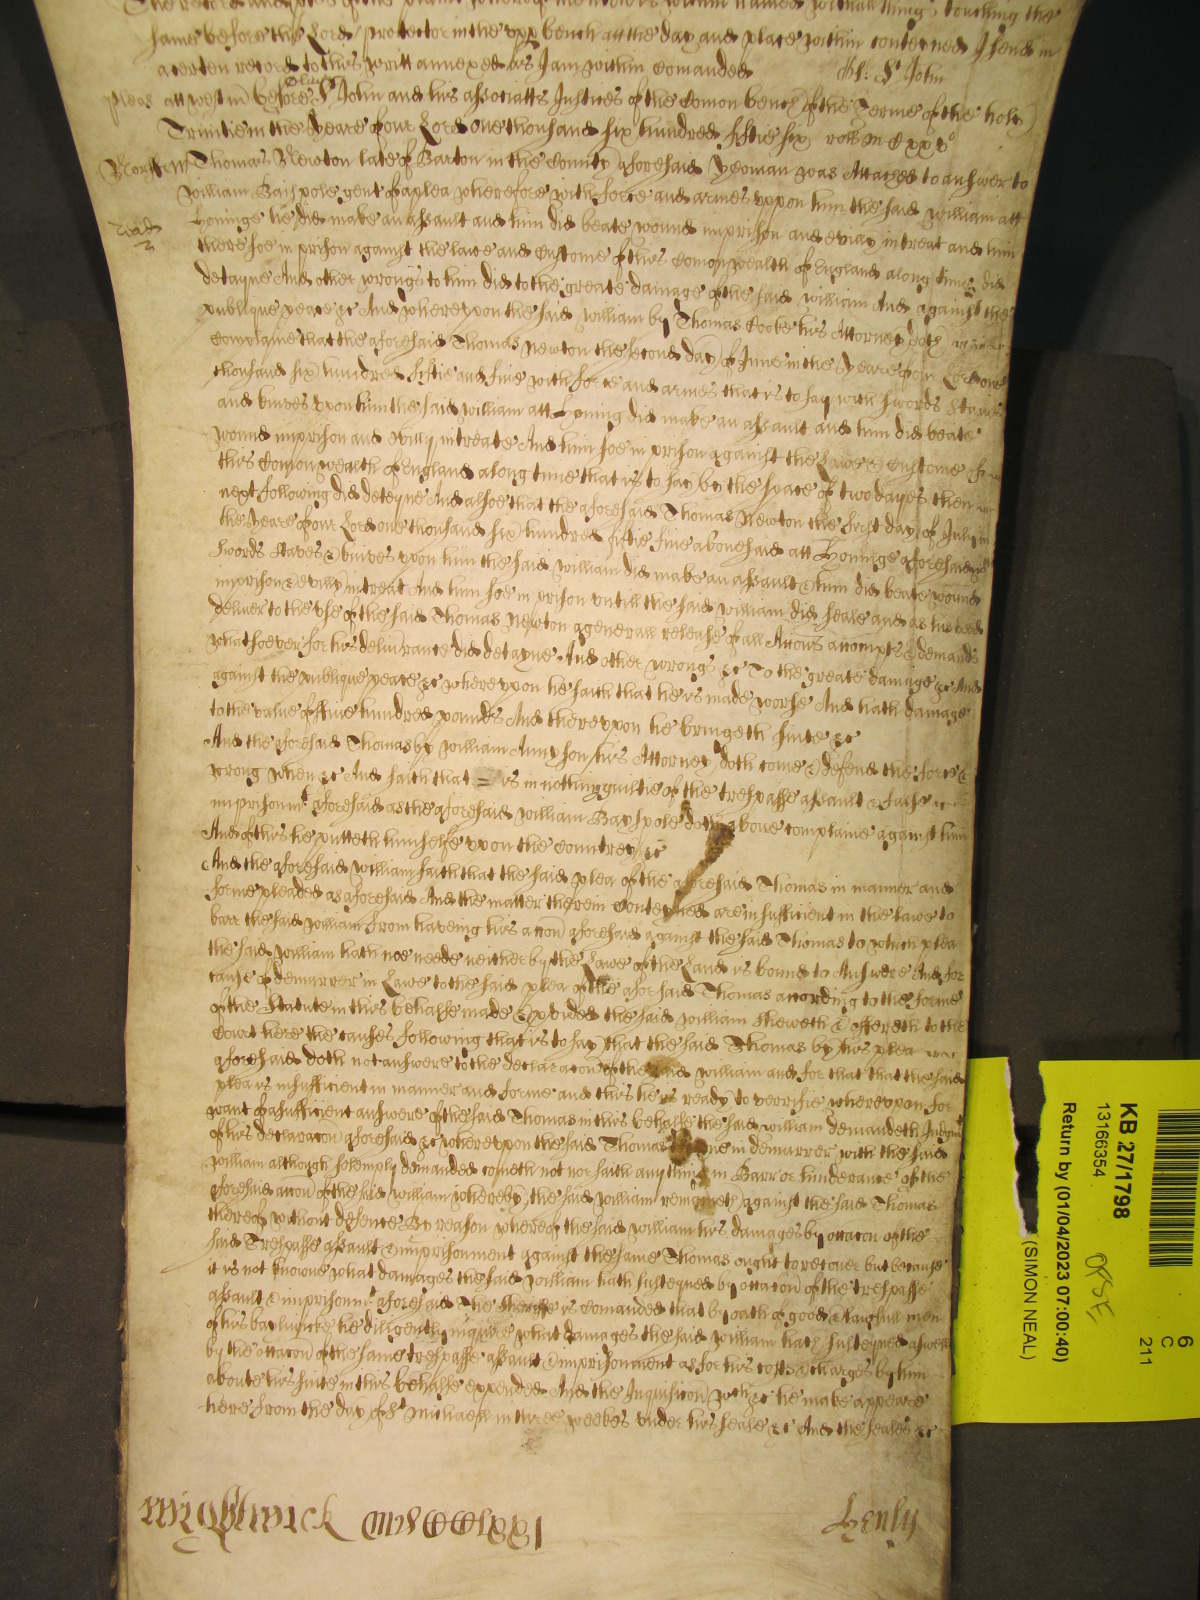 The record and plea whereof mention is within named with all things touching the
same before the Lord protector in the upp bench att the day and place within conteyned I send in
a certen record to this writt annexed as I am within Comanded Ol: St John
Pleas att westm before Oliver St John and his associatts Justices of the Comon bench of the Terme of the holy
Trinitie in the yeare of our Lord one thousand six hundred fiftie six roll m Cxxv
Norff Thomas Newton late of Barton in the County aforesaid yeoman was Attached to answer to
William Baispole gent of a plea wherefore with force and armes uppon him the said William att
Honinge he did make an assault and him did beate wound imprison and evilly intreat and him
there soe in prison against the lawe and Custome of this Comonwealth of England a long time did
detayne And other wrongs to him did to the greate damage of the said William And against the
publique peace &c And whereupon the said William by Thomas Cooke his Attorney doth
Complaine that the aforesaid Thomas Newton the second day of June in the yeare of our Lord one
thousand six hundred fiftie and five with force and armes that is to say with swords staves
and knives upon him the said William att Honing did make an assault and him did beate
wound imprison and evilly intreate And him soe in prison against the Lawe & Custome of
this Comonwealth of England a long time that is to say by the space of two dayes then
next following did deteyne And alsoe that the aforesaid Thomas Newton the first day of July in
the yeare of our Lord one thousand six hundred fiftie five abovesaid att Honinge aforesaid with
swords staves & knives upon him the said William did make an assault & him did beate wound
imprison & evilly intreat And him soe in prison untill the said William did seale and as his deed
deliver to the use of the said Thomas Newton a generall release of all Accons accompts & demands
whatsoever for his deliverance did detayne And other wrongs &c To the greate damage &c And
against the publique peace &c whereupon he saith that he is made worse And hath damage
to the value of five hundred pounds And thereupon he bringeth suite &c
And the aforesaid Thomas by William Annyson his Attorney doth come & defend the force &
wrong when &c And saith that = is in nothing guiltie of the trespasse assault &
imprisonmt aforesaid as the aforesaid William Bayspole doth above complaine against him
And of this he putteth himselfe upon the Countrey &c
And the aforesaid William saith that the said plea of the aforesaid Thomas in manner and
forme pleaded as aforesaid And the matter therein Conteyned are insufficient in the lawe to
barr the said William from haveing his accon aforesaid against the said Thomas to which plea
the said William hath noe neede neither by the Lawe of the Land is bound to Answere And for
cause of demurrer in Lawe to the said plea of the aforsaid Thomas according to the forme
of the Statute in this behalfe made & provided the said William sheweth & offereth to the
Court here the causes following that is to say that the said Thomas by his plea
aforesaid doth not answere to the declaracon of the said William and for that that the said
plea is insufficient in manner and forme and this he is ready to verifie whereupon for
want of a sufficient answere of the said Thomas in this behalfe the said William demandeth Judgmt
of his declaracon aforesaid &c whereupon the said Thomas in demurrer with the said
William although solemply demanded cometh not nor saith any thing in Barr or hinderance of the
aforesaid accon of the said William whereby the said William remayneth against the said Thomas
thereof without defence By reason whereof the said William his damages by occacon of the
said Trespasse assault & imprisonment against the same Thomas ought to recover but because
it is not knowne what damages the said William hath susteyned by occacon of the trespasse
assault & imprisonmt aforesaid The Sheriffe is Comanded that by oath of good & lawfull men
of his baylywicke he diligently inquire what damages the said William hath susteyned aswell
by the occacon of the same trespasse assault & imprisonment as for his costs & charges by him
about his suite in this behalfe expended And the Inquisicon wch &c he make appeare
here from the day of St Michaell in three weekes under his seale &c And the seales &c
Wightwick Henly
KB 27/1798
13166354
Return by (01/04/2023 07:00:40)
(SIMON NEAL)
6
C
211